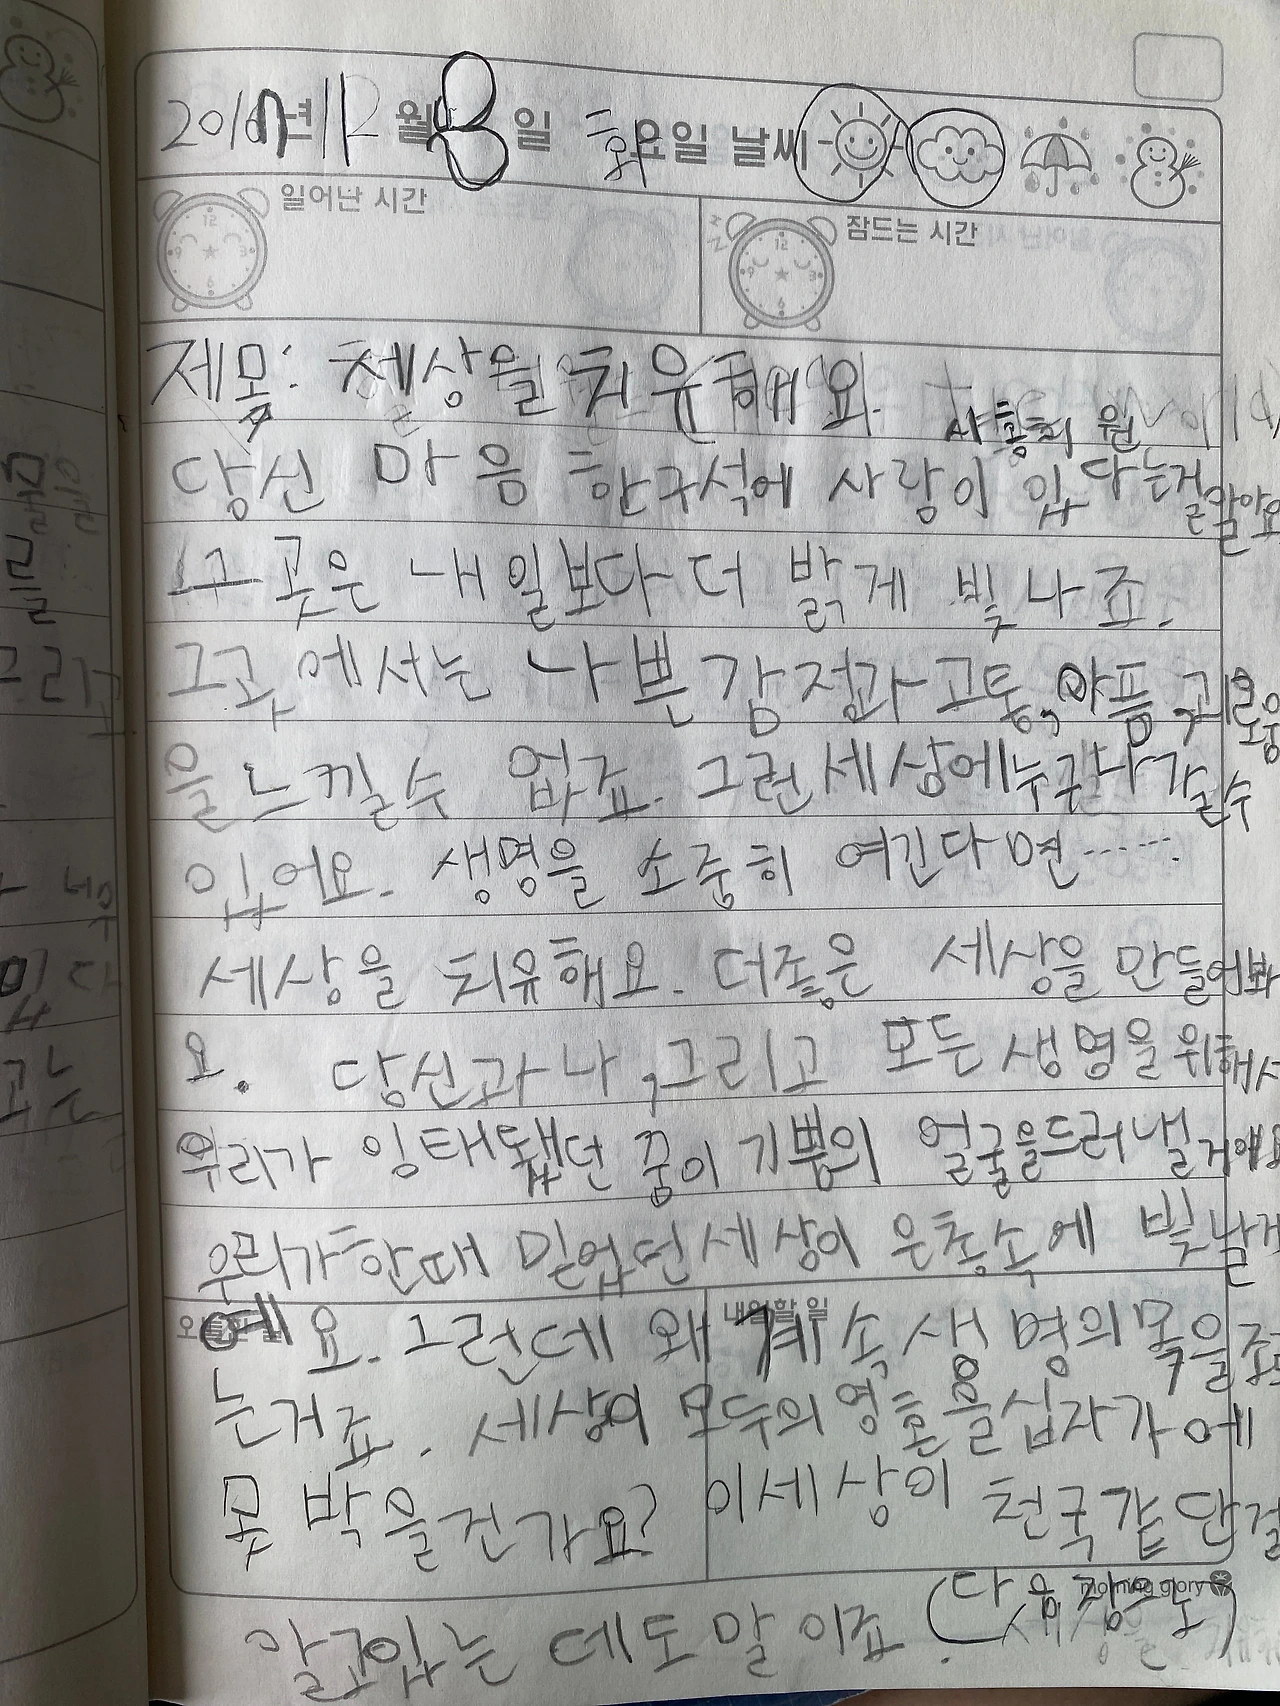 2016년 12월 13일 화요일 날씨
일어난 시간 잠드는 시간
제목: 세상을 치유해요.
당신 마음 한구석에 사랑이 있다는걸알아요
그곳은 내일보다 더 밝게 빛나죠.
그곳에서는 나쁜감정과고통,아픔,괴로움
을느낄수 없죠. 그런세상에누구나갈수
있어요. 생명을 소중히 여긴다면.......
세상을 치유해요. 더좋은 세상을만들어봐
요. 당신과나,그리고 모든생명을위해서
우리가 잉태됐던 꿈이 기쁨의 얼굴을드러낼거예요
우리가한때 믿었던세상이 은총속에 빛날거
오늘한 일 내일할 일
예요. 그런데 왜 계속생명의목을조르
는거죠. 세상이 모두의영혼을십자가에
못박을건가요? 이세상이 천국같단걸
morning glory
알고있는데도말이죠. (다음장으로)